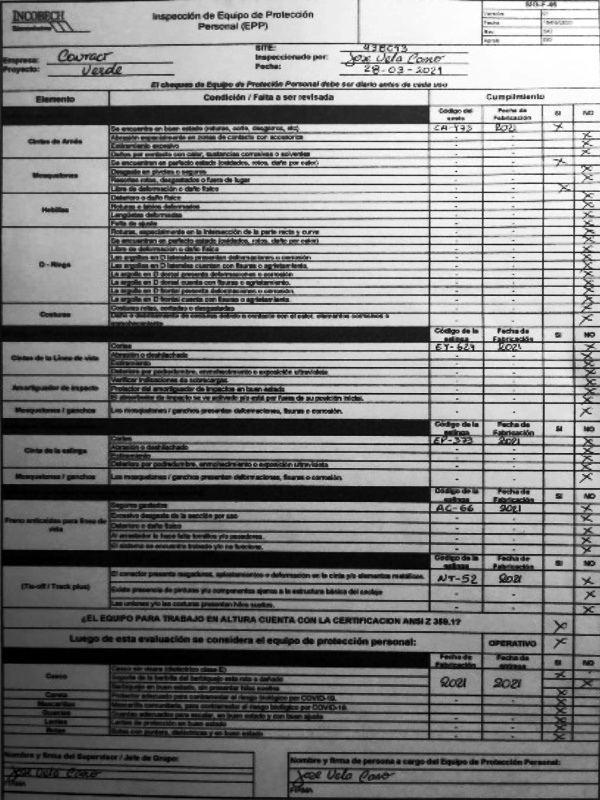 INCOBECH
Inspección de Equipo de Protección
Personal (EPP)
SIG-F-46
Empresa: Couract
Proyecto: Verde
SITE: 438093
Inspeccionado por: Jose Vela Cano
Fecha: 28-03-2021
El chequeo de Equipo de Protección Personal debe ser diario antes de cada uso
Elemento Condición / Falta a ser revisada Cumplimiento
Código del arnés Fecha de Fabricación SI NO
Cintas de Arnés
Se encuentra en buen estado (roturas, corte, desgarros, etc) CA-Y73 2021 X
Abrasión especialmente en zonas de contacto con accesorios - - X
Estiramiento excesivo - - X
Daños por contacto con calor, sustancias corrosivas o solventes - - X
Mosquetones
Se encuentran en perfecto estado (oxidados, rotos, daño por calor) - - X
Desgaste en pivotes o seguros - - X
Resortes rotos, desgastados o fuera de lugar - - X
Libre de deformación o daño físico - - X
Hebillas
Deterioro o daño físico - - X
Roturas o lados deformados - - X
Lengüetas deformadas - - X
Falta de ajuste - - X
D - Rings
Roturas, especialmente en la intersección de la parte recta y curve - - X
Se encuentran en perfecto estado (oxidados, rotos, daño por calor) - - X
Libre de deformación o daño físico - - X
Las argollas en D laterales presentan deformaciones o corrosión - - X
Las argollas en D laterales cuentan con fisuras o agrietamiento. - - X
La argolla en D dorsal presenta deformaciones o corrosión - - X
La argolla en D dorsal cuenta con fisuras o agrietamiento. - - X
La argolla en D frontal presenta deformaciones o corrosión. - - X
La argolla en D frontal cuenta con fisuras o agrietamiento. - - X
Costuras
Costuras rotas, cortadas o desgastadas - - X
Código de la eslinga Fecha de Fabricación SI NO
Cintas de la Línea de vida
Cortes EY-624 2021 X
Abrasión o deshilachado - - X
Estiramiento - - X
Deterioro por podredumbre, enmohecimiento o exposición ultravioleta - - X
Amortiguador de impacto
Verificar indicaciones de sobrecargas - - X
Protector del amortiguador de impactos en buen estado - - X
El absorbente de impacto se ve activado y/o está por fuera de su posición inicial. - - X
Mosquetones / ganchos
Los mosquetones / ganchos presentan deformaciones, fisuras o corrosión. - - X
Código de la eslinga Fecha de Fabricación SI NO
Cinta de la eslinga
Cortes EP-373 2021 X
Abrasión o deshilachado - - X
Estiramiento - - X
Deterioro por podredumbre, enmohecimiento o exposición ultravioleta - - X
Mosquetones / ganchos
Los mosquetones / ganchos presentan deformaciones, fisuras o corrosión. - - X
Código de la eslinga Fecha de Fabricación SI NO
Freno anticaídas para línea de vida
Seguros gastados AC-66 2021 X
Excesivo desgaste de la sección por uso - - X
Deterioro o daño físico - - X
Al arrestador le hace falta tornillos y/o pasadores. - - X
El sistema se encuentra trabado y/o no funciona. - - X
Código de la eslinga Fecha de Fabricación SI NO
(Tie-off / Track plus)
El conector presenta rasgaduras, aplastamientos o deformación en la cinta y/o elementos metálicos. NT-52 2021 X
Existe presencia de pinturas y/o componentes ajenos a la estructura básica del anclaje - - X
Las uniones y/o las costuras presentan hilos sueltos. - - X
¿EL EQUIPO PARA TRABAJO EN ALTURA CUENTA CON LA CERTIFICACION ANSI Z 359.1? X
Luego de esta evaluación se considera el equipo de protección personal: OPERATIVO X
Fecha de Fabricación Fecha de entrega SI NO
Casco
Casco sin visera (dieléctrico clase E) 2021 2021 X
Soporte de la barbilla del barbiquejo esta roto o dañado X
Barbiquejo en buen estado, sin presentar hilos sueltos X
Careta
Protector adecuado para contrarrestar el riesgo biológico por COVID-19. - - X
Mascarillas
Mascarilla comunitaria, para contrarrestar el riesgo biológico por COVID-19. - - X
Guantes
Guantes adecuados para escalar, en buen estado y con buen ajuste - - X
Lentes
Lentes de protección en buen estado - - X
Botas
Botas con puntera, dieléctricas y en buen estado - - X
Nombre y firma del Supervisor / Jefe de Grupo:
Jose Vela Cano
FIRMA
Nombre y firma de persona a cargo del Equipo de Protección Personal:
Jose Vela Cano
FIRMA